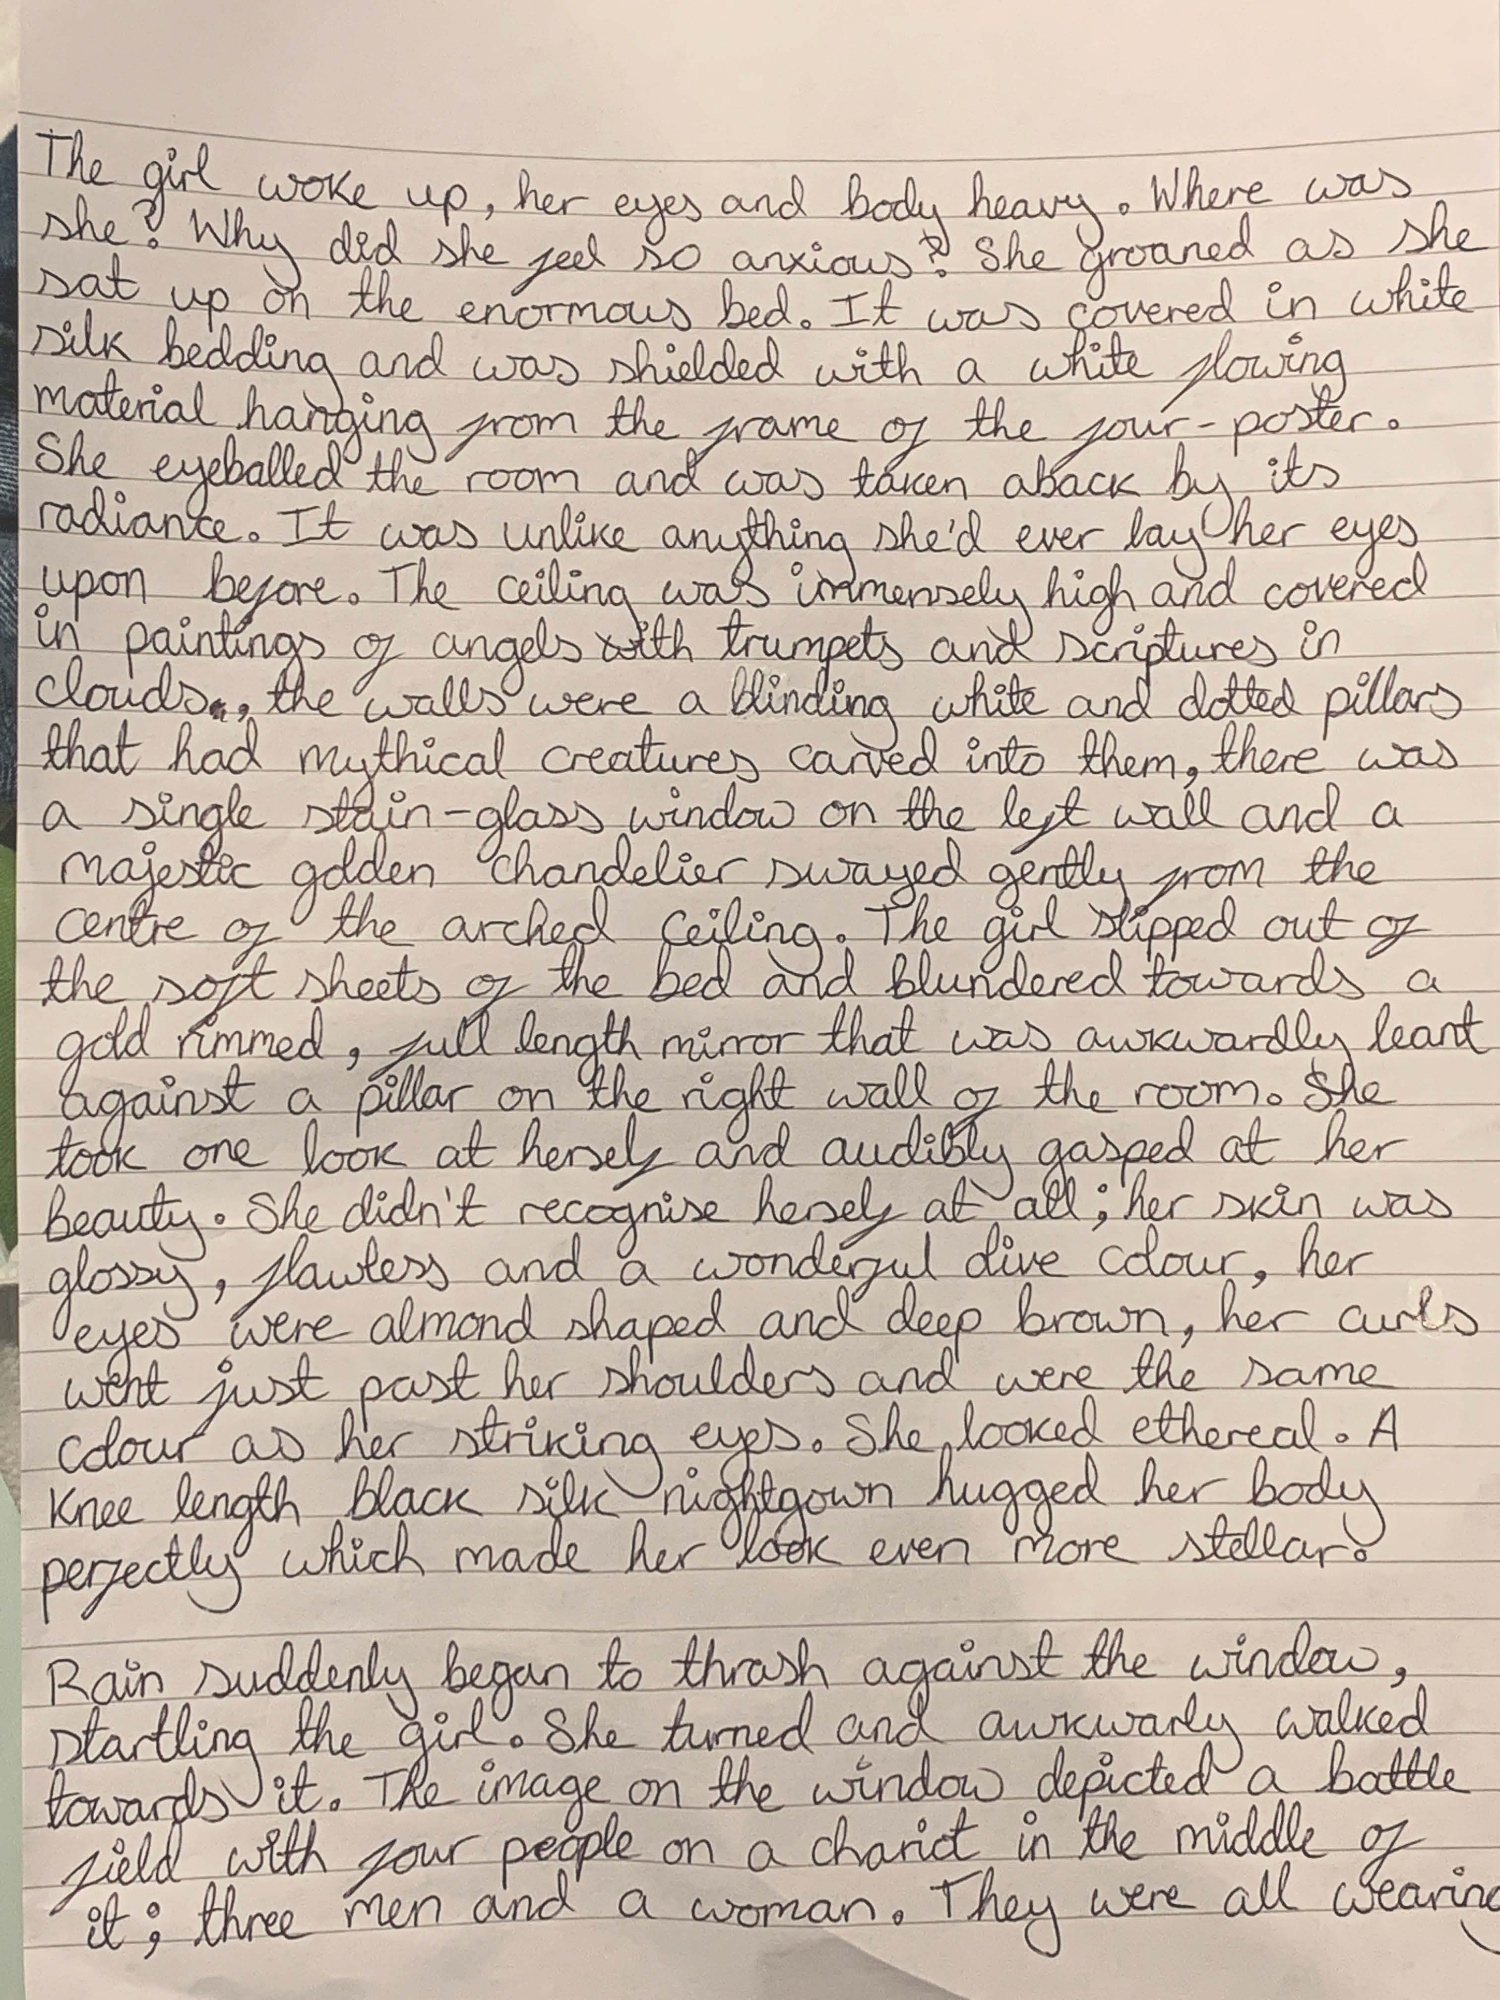 The girl woke up, her eyes and body heavy. Where was
she? Why did she feel so anxious? She groaned as she
sat up on the enormous bed. It was covered in white
silk bedding and was shielded with a white flowing
material hanging from the frame of the four-poster.
She eyeballed the room and was taken aback by its
radiance. It was unlike anything she'd ever lay her eyes
upon before. The ceiling was immensely high and covered
in paintings of angels with trumpets and scriptures in
clouds, the walls were a blinding white and dotted pillars
that had mythical creatures carved into them, there was
a single stain-glass window on the left wall and a
majestic golden chandelier swayed gently from the
centre of the arched ceiling. The girl slipped out of
the soft sheets of the bed and blundered towards a
gold rimmed, full length mirror that was awkwardly leant
against a pillar on the right wall of the room. She
took one look at herself and audibly gasped at her
beauty. She didn't recognise herself at all; her skin was
glossy, flawless and a wonderful olive colour, her
eyes were almond shaped and deep brown, her curls
went just past her shoulders and were the same
colour as her striking eyes. She looked ethereal. A
knee length black silk nightgown hugged her body
perfectly which made her look even more stellar.
Rain suddenly began to thrash against the window,
startling the girl. She turned and awkwarly walked
towards it. The image on the window depicted a battle
field with four people on a chariot in the middle of
it; three men and a woman. They were all wearing